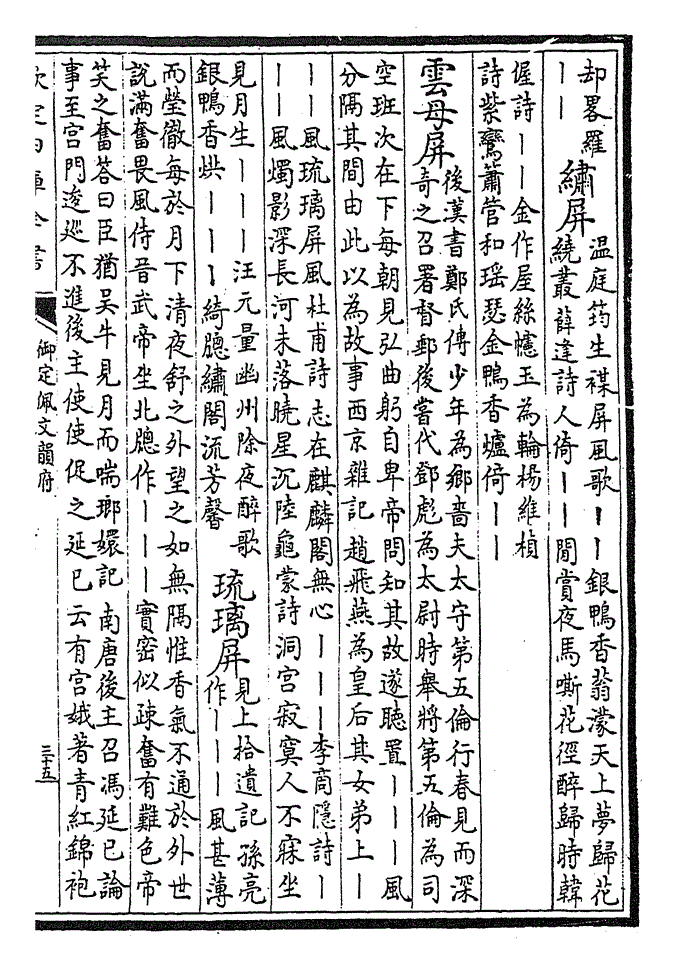 却畧羅
｜｜
繡屏
温庭筠生禖屏風歌｜｜銀鴨香蓊濛天上夢歸花
繞叢薛逢詩人倚｜｜閒賞夜馬嘶花徑醉歸時韓
偓詩｜｜金作屋絲幰玉為輪楊維楨
詩紫鸞簫管和瑶瑟金鴨香爐倚｜｜
雲母屏
後漢書鄭氏傳少年為鄉嗇夫太守第五倫行春見而深
奇之召署督郵後當代鄧彪為太尉時舉將第五倫為司
空班次在下每朝見弘曲躬自卑帝問知其故遂聽置｜｜｜風
分隔其間由此以為故事西京雜記趙飛燕為皇后其女弟上｜
｜｜風琉璃屏風杜甫詩志在麒麟閣無心｜｜｜李商隱詩｜
｜｜風燭影深長河未落曉星沉陸龜蒙詩洞宫寂寞人不寐坐
見月生｜｜｜汪元量幽州除夜醉歌
銀鴨香烘｜｜｜綺牕繡閣流芳馨
琉璃屏
見上拾遺記孫亮
作｜｜｜風甚薄
而瑩徹每於月下清夜舒之外望之如無隔惟香氣不通於外世
說滿奮畏風侍晉武帝坐北牕作｜｜｜實密似疎奮有難色帝
笑之奮答曰臣猶吳牛見月而喘瑯嬛記南唐後主召馮延巳論
事至宫門逡巡不進後主使使促之延巳云有宫娥著青紅錦袍
欽定四庫全書
御定佩文韻府
三十五